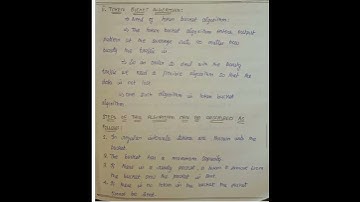 2. TOKEN BUCKET ALGORITHM:
→ Need of token bucket algorithm:
→ The leaky bucket algorithm enforces output
pattern at the average rate, no matter how
bursty the traffic is.
→ So in order to deal with the bursty
traffic we need a flexible algorithm so that the
data is not lost.
→ One such algorithm is token bucket
algorithm.
STEPS OF THIS ALGORITHM CAN BE DESCRIBED AS
FOLLOWS:
1. In regular intervals tokens are thrown into the
bucket.
2. The bucket has a maximum capacity.
3. If there is a ready packet, a token is removed from
the bucket and the packet is sent.
4. If there is no token in the bucket the packet
cannot be sent.